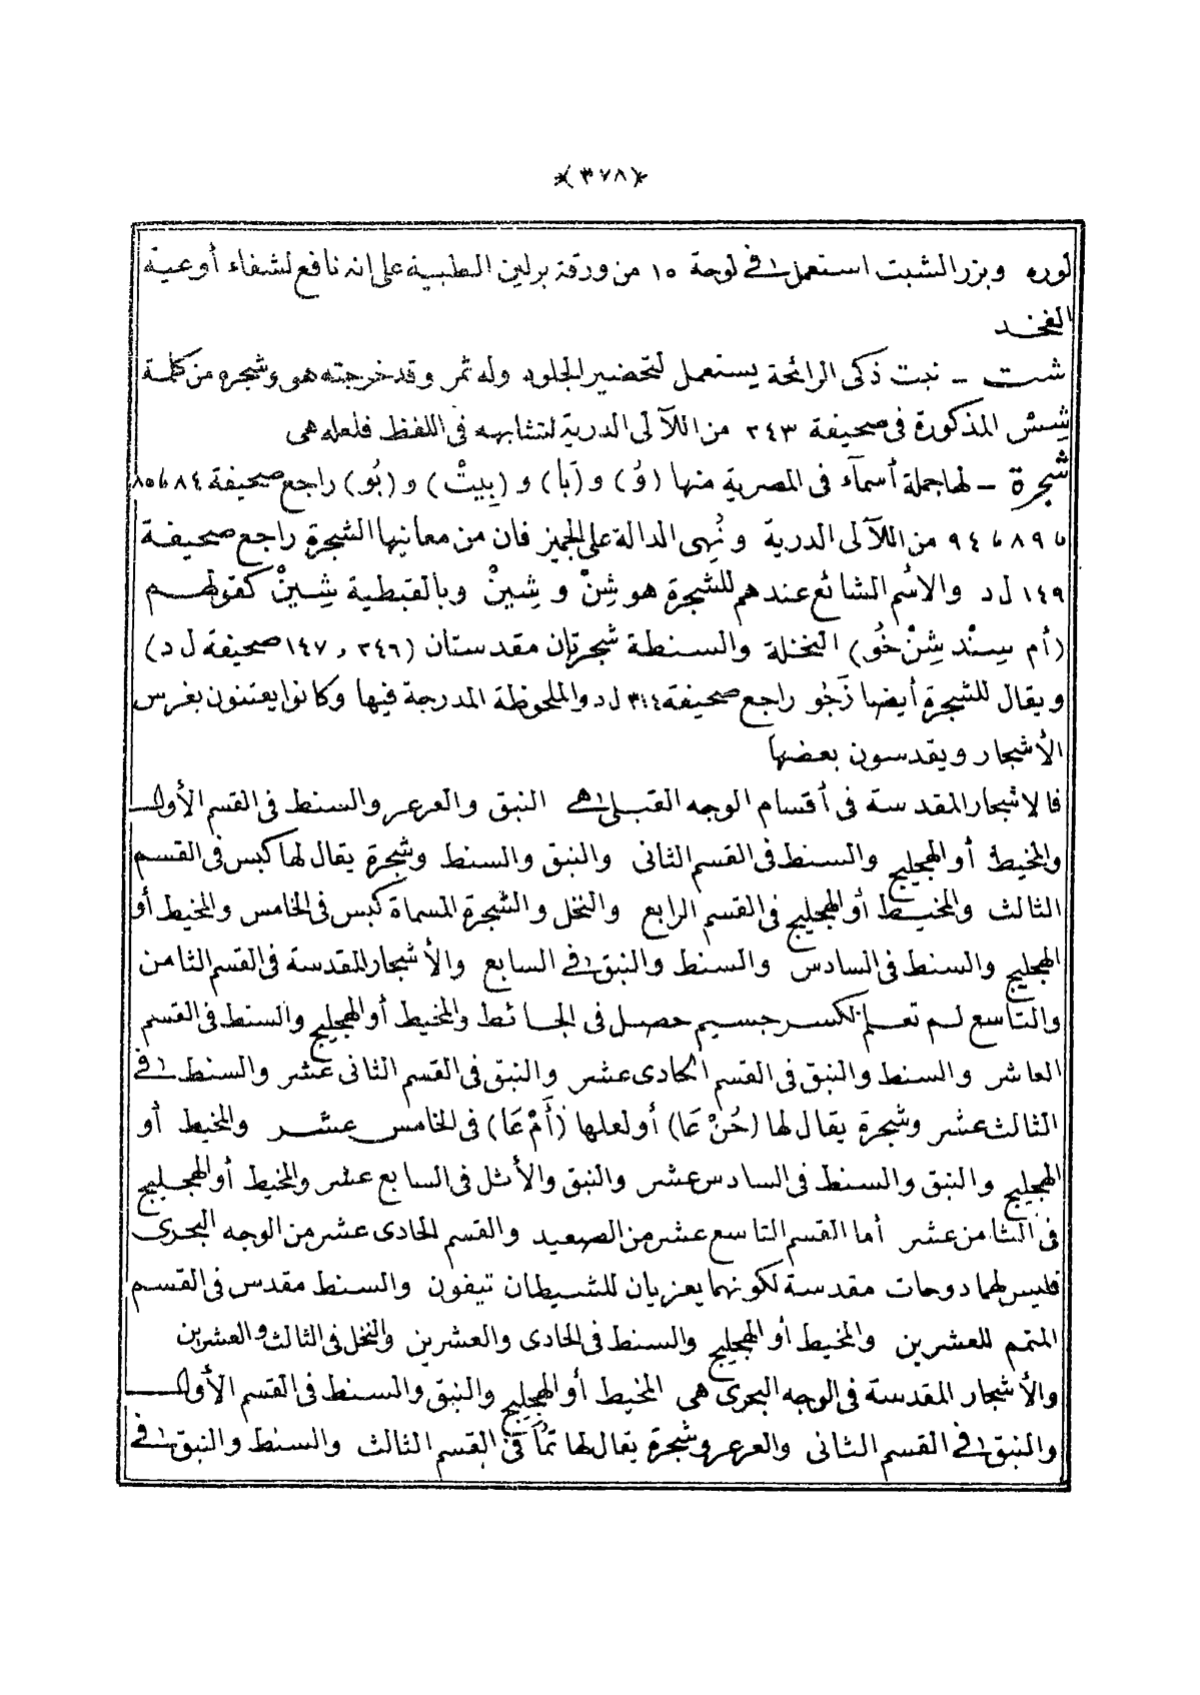 ﴿٣٧٨﴾
لوره وبزر الشبت استعمل في لوحة ١٥ من ورقة برلين الطبية على انه نافع لشفاء أوعية
الفخد
شت - نبت ذكى الرائحة يستعمل لتحضير الجلود وله ثمر وقد خرجته هو وشجره من كلمة
شِسْ المذكورة فى صحيفة ٢٤٣ من اللآلى الدرية لتشابهه فى اللفظ فلعله هى
شجرة - لها جملة أسمآء فى المصرية منها (وُ) و (بَا) و (بِيتْ) و (بُو) راجع صحيفة ٨٤ ، ٨٥
، ٨٩ ، ٩٤ من اللآلى الدرية ونُهى الدالة على الجميز فان من معانيها الشجرة راجع صحيفة
١٤٩ ل د والاسم الشائع عندهم للشجرة هو شِنْ و شِينْ وبالقبطية شِينْ كقولهم
(أم سِنْد شِنْ خُو) النخلة والسنطة شجرتان مقدستان (٢٤٦ ، ١٤٧ صحيفة ل د)
ويقال للشجرة أيضا زَجُو راجع صحيفة ٣١٤ ل د والملحوظة المدرجة فيها وكانوا يعتنون بغرس
الأشجار ويقدسون بعضها
فالاشجار المقدسة فى أقسام الوجه القبلى هى النبق والعرعر والسنط فى القسم الأول
والمخيط أو الهجليج والسنط فى القسم الثانى والنبق والسنط وشجرة يقال لها كبس فى القسم
الثالث والمخيط أو الهجليج فى القسم الرابع والنخل والشجرة المسماة كبس فى الخامس والمخيط أو
الهجليج والسنط فى السادس والسنط والنبق فى السابع والأشجار المقدسة فى القسم الثامن
والتاسع لم تعلم لكسر جسيم حصل فى الحائط والمخيط أو الهجليج والسنط فى القسم
العاشر والسنط والنبق فى القسم الحادى عشر والنبق فى القسم الثانى عشر والسنط فى
الثالث عشر وشجرة يقال لها (حُنْ عَا) أو لعلها (أَمْ عَا) فى الخامس عشر والمخيط أو
الهجليج والنبق والسنط فى السادس عشر والنبق والأثل فى السابع عشر والمخيط أو الهجليج
فى الثامن عشر أما القسم التاسع عشر من الصعيد والقسم الحادى عشر من الوجه البحرى
فليس لهما دوحات مقدسة لكونهما يعزيان للشيطان تيفون والسنط مقدس فى القسم
المتمم للعشرين والمخيط أو الهجليج والسنط فى الحادى والعشرين والنخل فى الثالث والعشرين
والأشجار المقدسة فى الوجه البحرى هى المخيط أو الهجليج والنبق والسنط فى القسم الأول
والنبق فى القسم الثانى والعرعر وشجرة يقال لها تمآ فى القسم الثالث والسنط والنبق فى